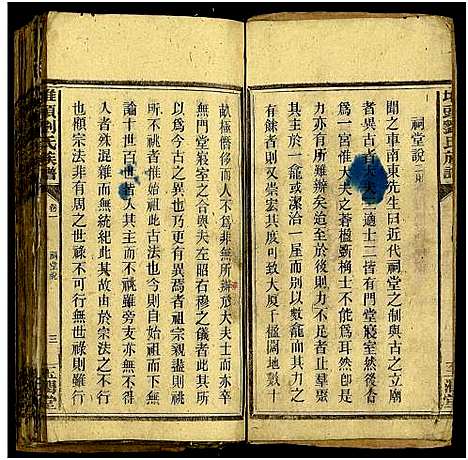 堆頭劉氏族譜
祠堂說二則
聞之車南東先生曰近代祠堂之制與古之立廟
者異古者大夫三適士二皆有門堂寢室然後合
為一宮惟大夫之蒼楹斲桷士不為耳然卽是
力有所難辦矣迨至於今有力者不止且羣聚
其先人於一龕或潔治一屋而別以數龕而其力
有餘者則又崇宏其度可致大廈千楹閎地數十
畝極僭侈而人不為非無所辦於大夫士而亦卒
無門堂寢室之合與夫左昭右穆之儀者此其所
以異也而抑又有異焉者祖宗親盡則祧
所不祧者惟始祖此古法也今則自始祖而下無
論十世百世皆若在而不祧雖旁支亦無不
人者殊混雜而無統紀此其故由於宗法之不行
也顧宗法為周之世祿不可行無世祿則雖行
堆頭劉氏族譜
卷一
祠堂說
三